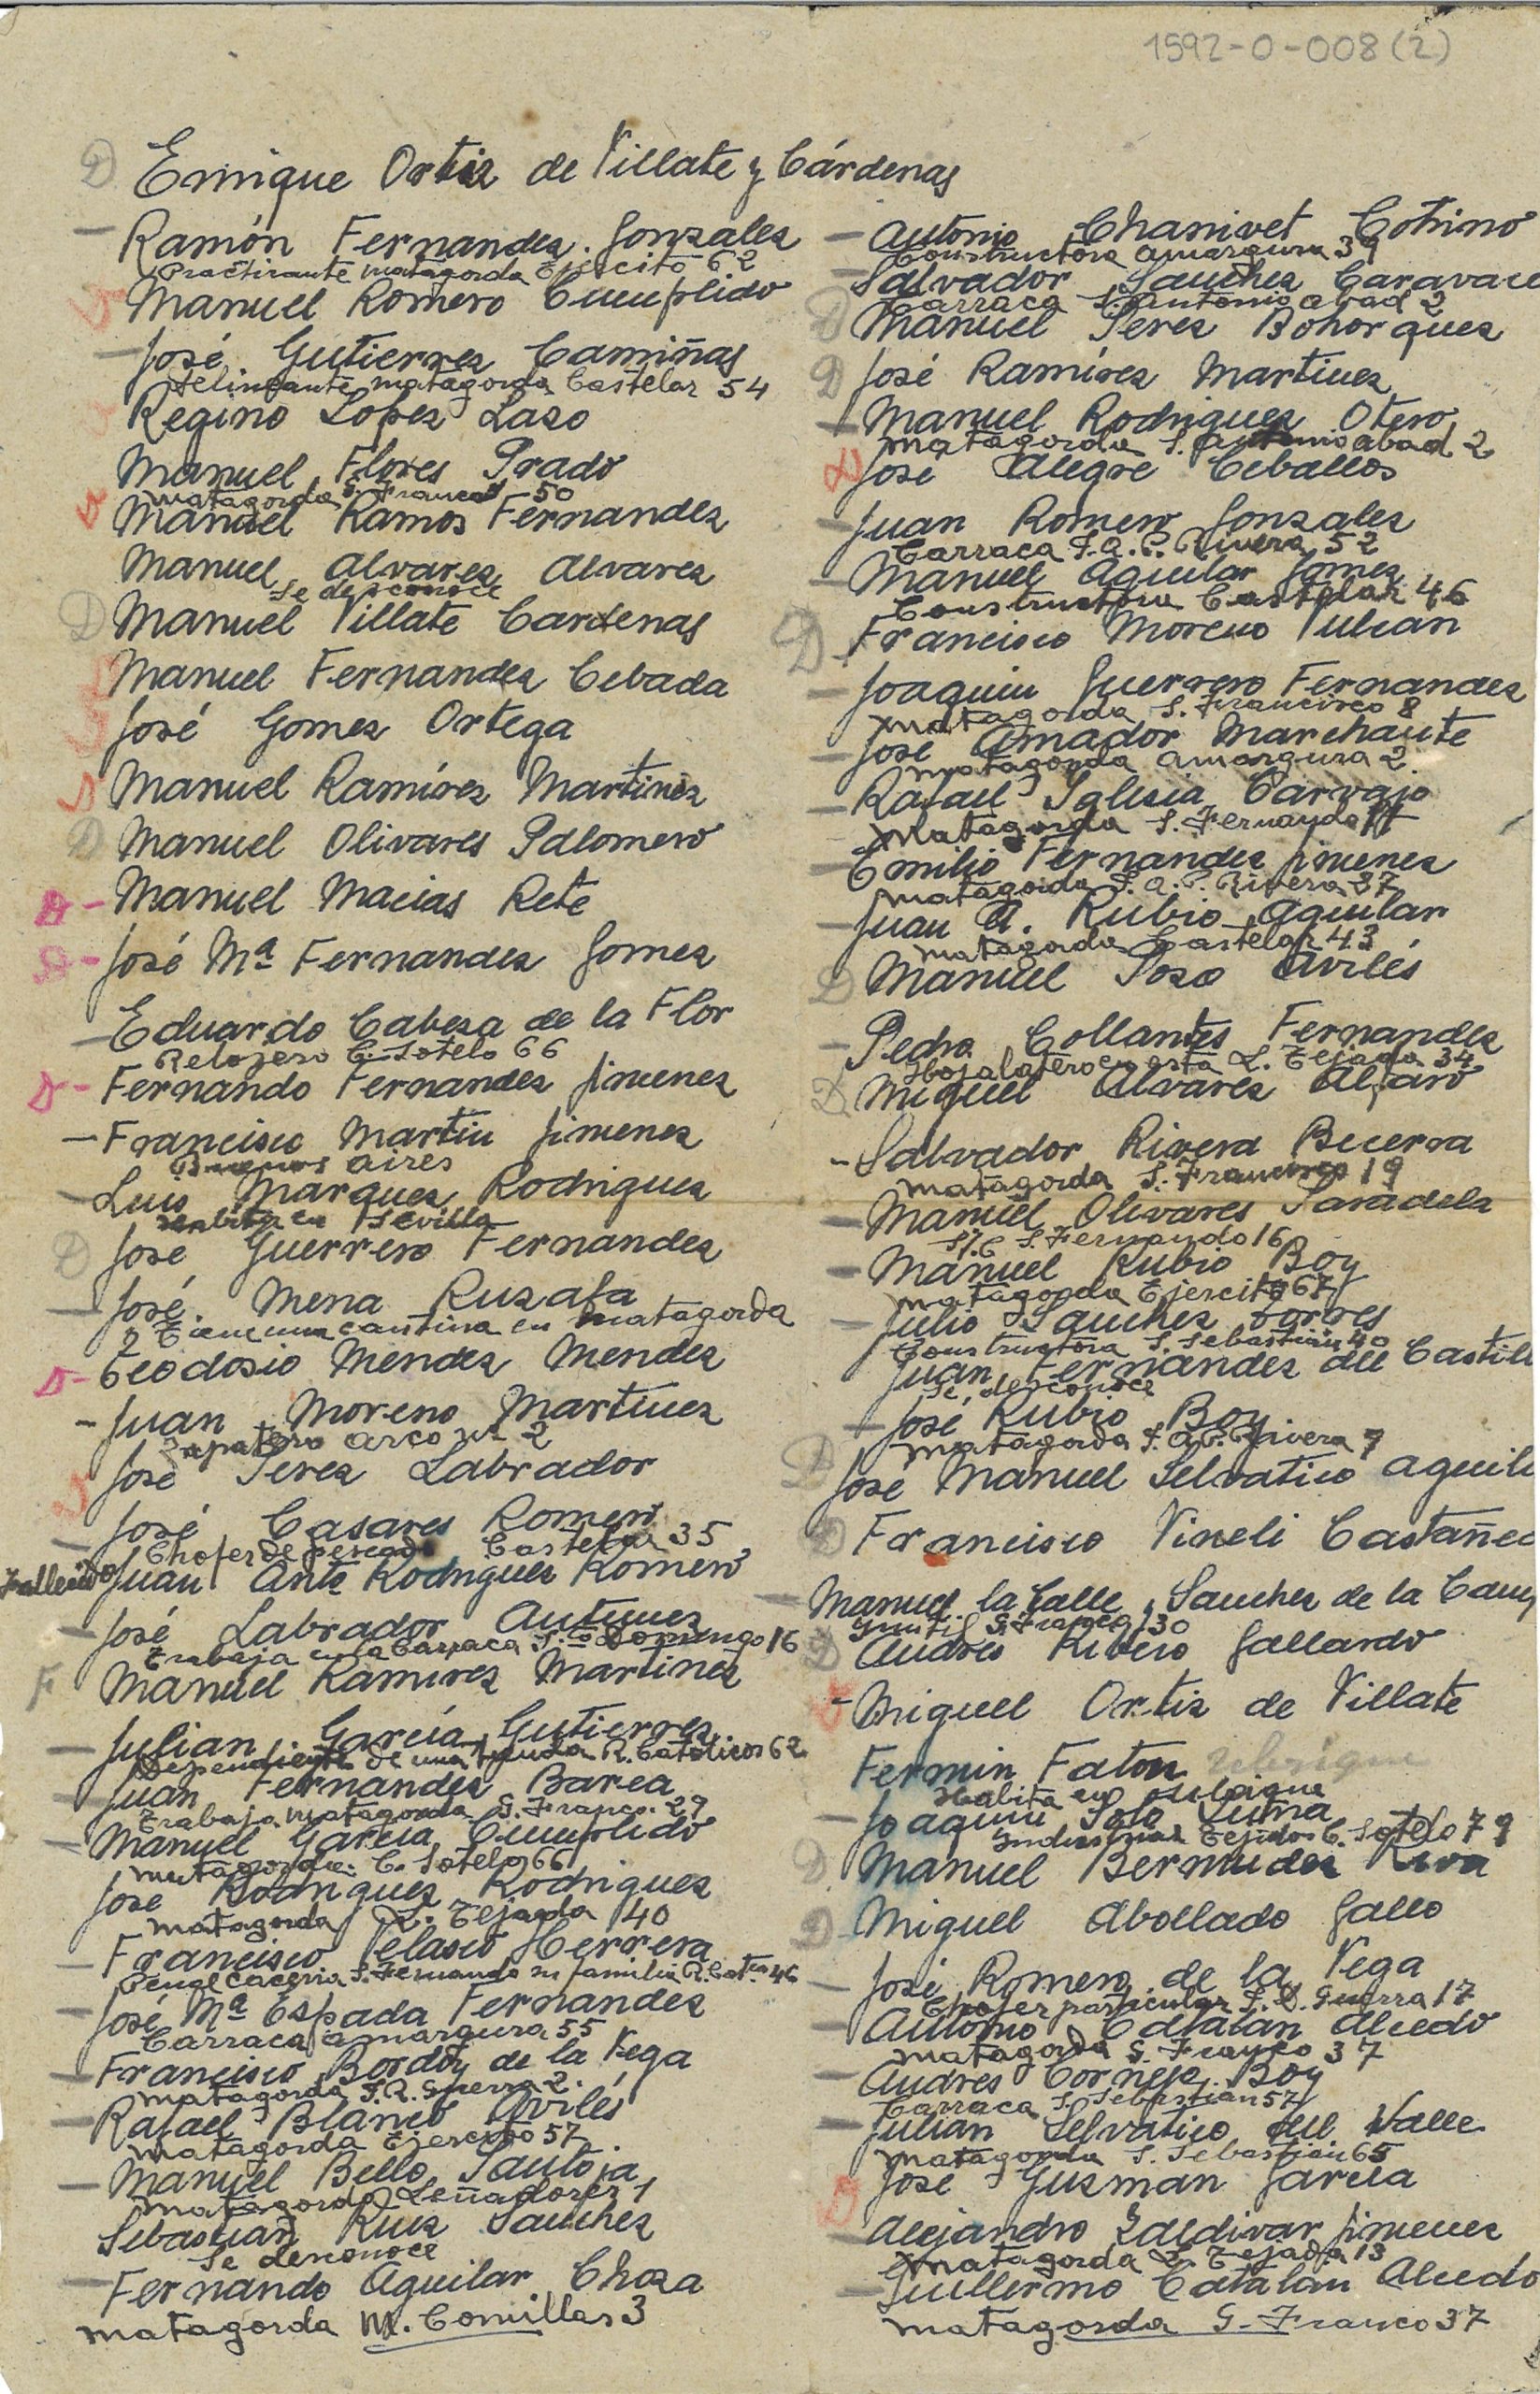 1592-0-008(2)
D Enrique Ortiz de Villate y Cárdenas
— Ramón Fernandez Gonzalez
Practicante matagorda Ejercito 62
Manuel Romero Cumplido
— José Gutierrez Camiñas
delineante matagorda Castelar 54
Regino Lopez Lazo
Manuel Flores Prado
matagorda G. Franco 50
Manuel Ramos Fernandez
Manuel Alvarez Alvarez
se desconoce
D Manuel Villate Cardenas
Manuel Fernandez Cebada
José Gomez Ortega
Manuel Ramírez Martinez
D Manuel Olivares Palomero
D - Manuel Macias Rete
D - José Mª Fernandez Gomez
— Eduardo Cabeza de la Flor
Relojero C. Sotelo 66
D - Fernando Fernandez Jimenez
— Francisco Martin Jimenez
Buenos aires
— Luis Marquez Rodriguez
Habita en Sevilla
D José Guerrero Fernandez
— José Mena Ruzafa
Tiene una cantina en matagorda
D - Teodosio Mendez Mendez
- Juan Moreno Martinez
Zapatero arco nº 2
José Perez Labrador
— José Casares Romero
Chofer de pescado Castelar 35
Fallecido Juan Antº Rodriguez Romero
— José Labrador Antunez
Trabaja en la Carraca S. to Domingo 16
F Manuel Ramirez Martinez
— Julian García Gutierrez
Dependiente de una tienda R. Catolicos 62
— Juan Fernandez Barea
Trabaja matagorda G. Franco. 29
— Manuel García Cumplido
matagorda. C. Sotelo 66
José Rodriguez Rodriguez
matagorda L. Tejada 40
— Francisco Velasco Herrera
S. Fernando su familia R. Catcos 46
— José Mª Espada Fernandez
Carraca amargura 55
— Francisco Bordoy de la Vega
matagorda Guerra 2.
— Rafael Blanco Avilés
matagorda Ejercito 57.
— Manuel Bello Pantoja
matagorda Leñadores 1
Sebastian Ruiz Sanchez
Se desconoce
— Fernando Aguilar Choza
matagorda M. Comillas 3
— Antonio Chanivet Cotrino
Constructora amargura 39
— Salvador Sanchez Caravace
Carraca S. antonio abad 2
D Manuel Perez Bohorquez
D José Ramírez Martinez
— Manuel Rodriguez Otero
matagorda S. antonio abad 2
D José Alegre Ceballos
— Juan Romero Gonzalez
Carraca J. A. P. Rivera 52
— Manuel Aguilar Gomez
Constructora Castelar 46
D Francisco Moreno Vulcan
— Joaquin Guerrero Fernandez
matagorda S. Francisco 8
— José Amador Marchante
matagorda amargura 2
— Rafael Iglesia Carvajo
matagorda S. Fernando
— Emilio Fernandez Jimenez
matagorda J. A. P. Rivera 37
— Juan A. Rubio Aguilar
matagorda Castelar 43
D Manuel Pozo Avilés
— Pedro Collantes Fernandez
Hojalatero cuesta L. Tejada 34
D Miguel Alvarez Alfaro
- Salvador Rivera Becerra
matagorda S. Francisco 19
— Manuel Olivares Paradela
S. Fernando 16
— Manuel Rubio Boy
matagorda Ejercito 67
— Julio Sanchez Torres
Constructora S. Sebastián 40
Juan Fernandez del Castill
Se desconoce
— José Rubio Boy
matagorda J. A. P. Rivera 7
D José Manuel Selvatico aguil
D Francisco Vineli Castañed
— Manuel la Calle Sanchez de la Camp
G. Franco 130
D Andres Rivero Gallardo
- Miguel Ortiz de Villate
Fermin Faton
Habita en
— Joaquin Soto Luma
Industrial Tejidos C. Sotelo 79
D Manuel Bermudez Riva
D Miguel Abollado Gallo
— José Romero de la Vega
Chofer particular Guerra 17
— Antonio Catalan Alcedo
matagorda G. Franco 37
— Andres Cornejo Boy
Carraca S. Sebastián 57
— Julian Selvatico del Valle
matagorda S. Sebastián 65
D José Guzman Garcia
— Alejandro Zaldivar Jimenez
matagorda L. Tejada 13
— Guillermo Catalan Alcedo
matagorda G. Franco 37